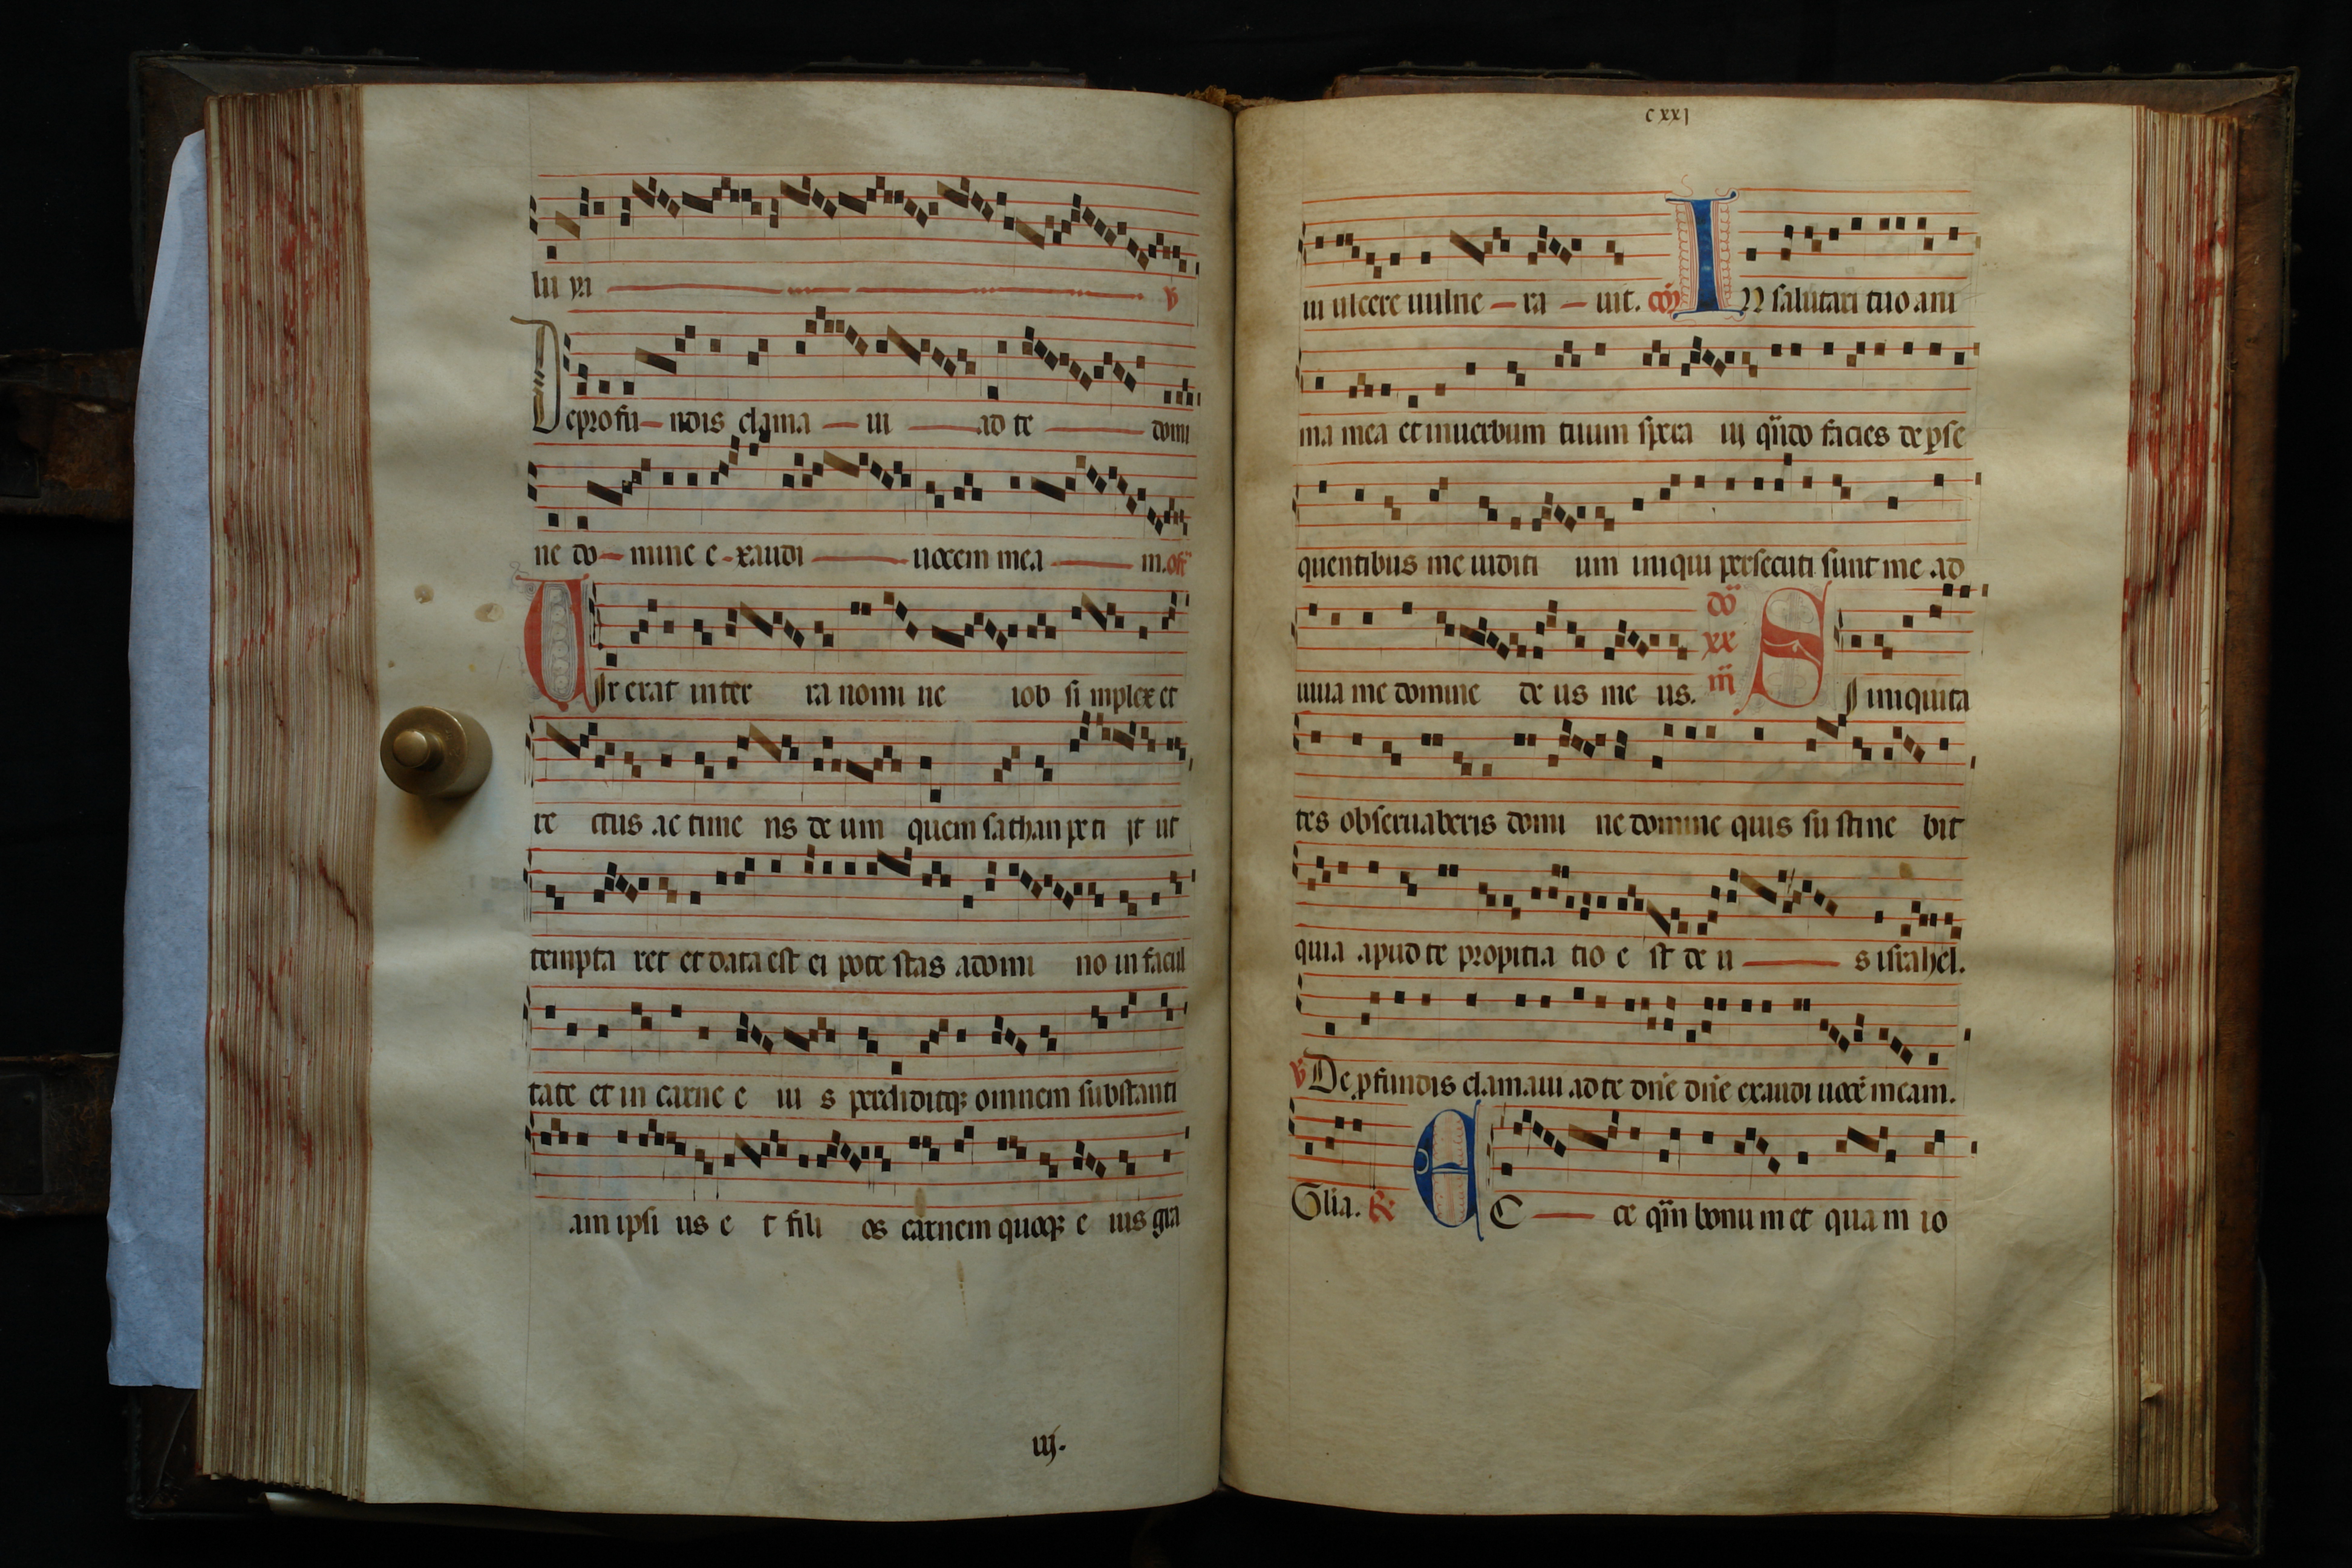 lu ya ℣
De profu ndis clama ui ad te domi
ne do mine e xaudi uocem mea m. off
UIr erat in ter ra nomi ne iob si mplex et
re ctus ac time ns de um quem sathan pe ti jt ut
tempta ret et data est ei pote stas adomi no in facul
tate et in carne e iu s perdiditqꝫ omnem substanti
am ipsi us e t fili os carnem quoqꝫ e ius gra
iij.
cxxj
ui ulcere uulne ra uit. cōȷ IN salutari tuo ani
ma mea et inuerbum tuum spera uj qn̄do facies de ꝑse
quentibus me iuditi um iniqui persecuti sunt me ad
iuua me domine de us me us. dō xx iij SI iniquita
tes obseruaberis domi ne domine quis su stine bit
quia apud te propitia tio e st de u s israhel.
℣ De ꝓfundis clamaui ad te dn̄e dn̄e exaudi uocē meam.
Glīa. ℟ EC ce qm̄ bonu m et qua m io